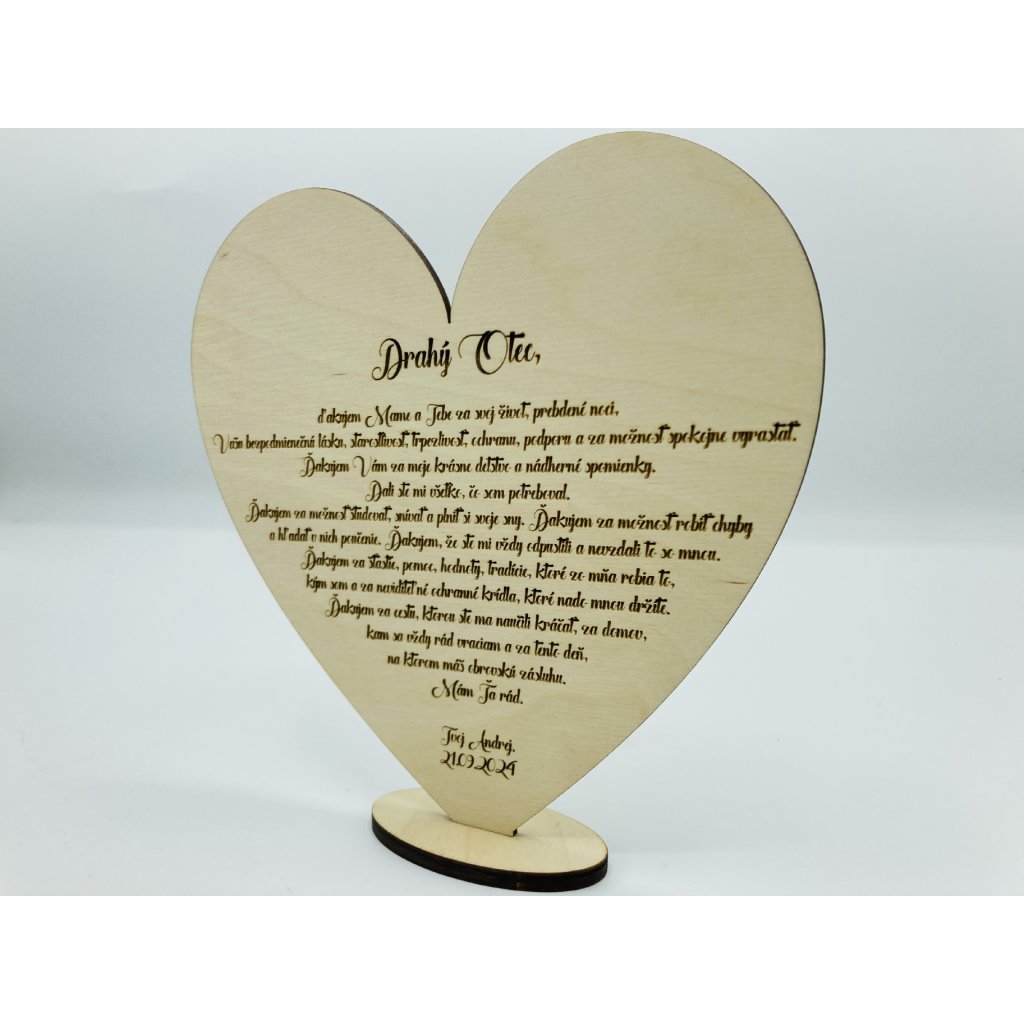 Drahý Otec,
ďakujem Mame a Tebe za svoj život, prebdené noci,
Vašu bezpodmienečnú lásku, starostlivosť, trpezlivosť, ochranu, podporu a za možnosť spokojne vyrastať.
Ďakujem Vám za moje krásne detstvo a nádherné spomienky.
Dali ste mi všetko, čo som potreboval.
Ďakujem za možnosť študovať, snívať a plniť si svoje sny. Ďakujem za možnosť robiť chyby
a hľadať v nich poučenie. Ďakujem, že ste mi vždy odpustili a nevzdali to so mnou.
Ďakujem za šťastie, pomoc, hodnoty, tradície, ktoré zo mňa robia to,
kým som a za neviditeľné ochranné krídla, ktoré nado mnou držíte.
Ďakujem za cestu, ktorou ste ma naučili kráčať, za domov,
kam sa vždy rád vraciam a za tento deň,
na ktorom máš obrovskú zásluhu.
Mám Ťa rád.
Tvoj Andrej.
21.09.2024